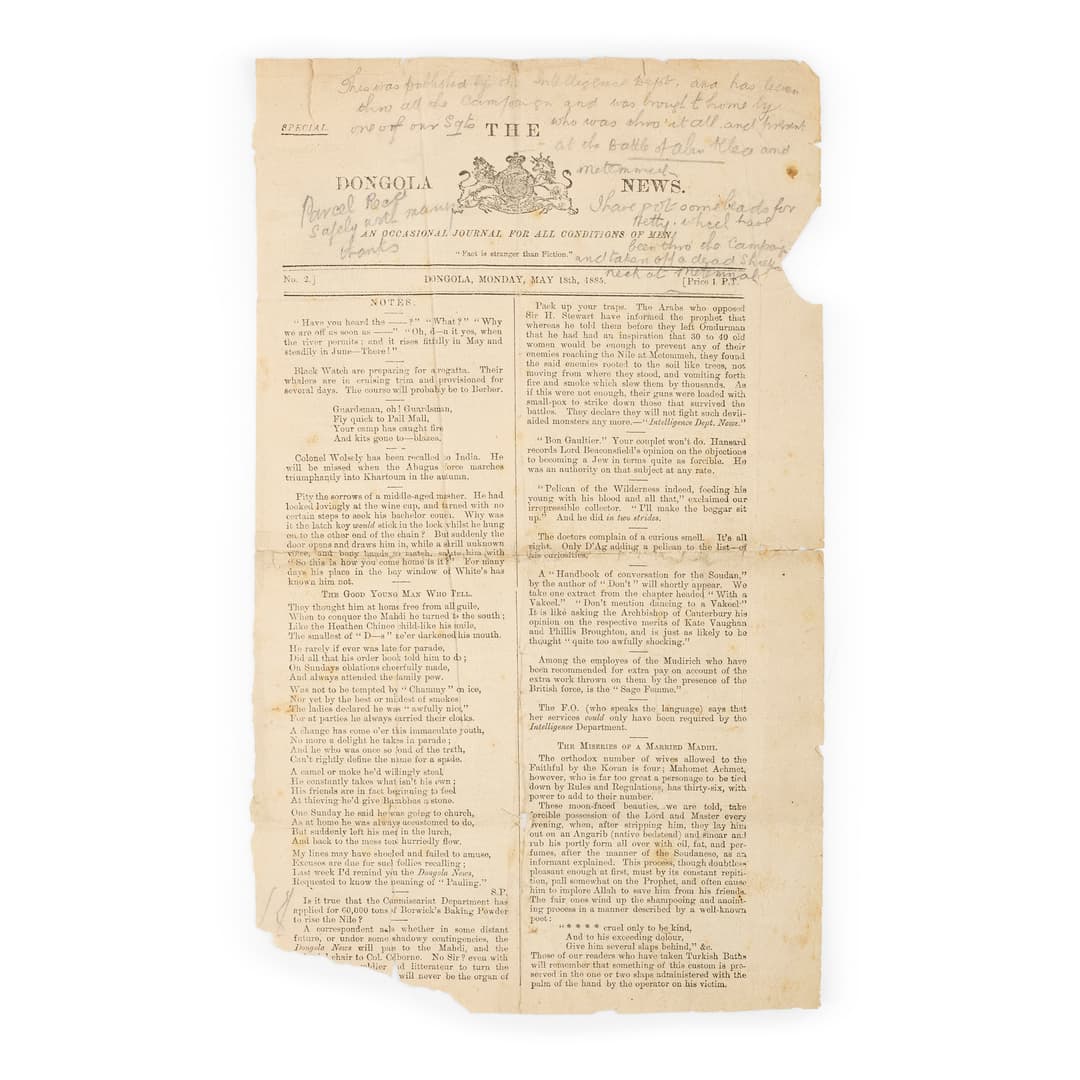 This was published by the Intelligence Dept. and has been
thro all the Campaign and was brought home by
one of our Sgts who was thro' it all and present
at the Battle of Abu Klea and
Metemmeh
SPECIAL.
THE
DONGOLA NEWS.
Parcel Post
Safely with many
thanks
I have got some beads for
Hetty. which have
been thro the Campaign
and taken off a dead
neck at Metemmah
AN OCCASIONAL JOURNAL FOR ALL CONDITIONS OF MEN.
"Fact is stranger than Fiction."
No. 2.] DONGOLA, MONDAY, MAY 18th, 1885. [Price 1 P.T.
NOTES.
"Have you heard the ——?" "What?" "Why
we are off as soon as ——" "Oh, d—n it yes, when
the river permits; and it rises fitfully in May and
steadily in June—There!"
Black Watch are preparing for a rogatta. Their
whalers are in cruising trim and provisioned for
several days. The course will probably be to Berber.
Guardsman, oh! Guardsman,
Fly quick to Pall Mall,
Your camp has caught fire
And kits gone to—blazes.
Colonel Wolsely has been recalled to India. He
will be missed when the Abagus force marches
triumphantly into Khartoum in the autumn.
Pity the sorrows of a middle-aged masher. He had
looked lovingly at the wine cup, and turned with no
certain steps to seek his bachelor couch. Why was
it the latch key would stick in the lock whilst he hung
on to the other end of the chain? But suddenly the
door opens and draws him in, while a shrill unknown
voice, and bony hands to match, salute him with
"So this is how you come home is it?" For many
days his place in the bay window of White's has
known him not.
THE GOOD YOUNG MAN WHO FELL.
They thought him at home free from all guile,
When to conquer the Mahdi he turned to the south;
Like the Heathen Chinee child-like his smile,
The smallest of "D—s" ne'er darkened his mouth.
He rarely if ever was late for parade,
Did all that his order book told him to do;
On Sundays oblations cheerfully made,
And always attended the family pew.
Was not to be tempted by "Chammy" on ice,
Nor yet by the best or mildest of smokes;
The ladies declared he was "awfully nice,"
For at parties he always carried their cloaks.
A change has come o'er this immaculate youth,
No more a delight he takes in parade;
And he who was once so fond of the truth,
Can't rightly define the name for a spade.
A camel or moke he'd willingly steal,
He constantly takes what isn't his own;
His friends are in fact beginning to feel
At thieving he'd give Barabbas a stone.
One Sunday he said he was going to church,
As at home he was always accustomed to do,
But suddenly left his men in the lurch,
And back to the mess tent hurriedly flew.
My lines may have shocked and failed to amuse,
Excuses are due for such follies recalling;
Last week I'd remind you the Dongola News,
Requested to know the meaning of "Pauling."
S.P.
Is it true that the Commissariat Department has
applied for 60,000 tons of Borwick's Baking Powder
to rise the Nile?
A correspondent asks whether in some distant
future, or under some shadowy contingencies, the
Dongola News will pass to the Mahdi, and the
chair to Col. Colborne. No Sir? even with
soldier and litterateur to turn the
will never be the organ of
18
Pack up your traps. The Arabs who opposed
Sir H. Stewart have informed the prophet that
whereas he told them before they left Omdurman
that he had had an inspiration that 30 to 40 old
women would be enough to prevent any of their
enemies reaching the Nile at Metemmeh, they found
the said enemies rooted to the soil like trees, not
moving from where they stood, and vomiting forth
fire and smoke which slew them by thousands. As
if this were not enough, their guns were loaded with
small-pox to strike down those that survived the
battles. They declare they will not fight such devil-
aided monsters any more.—"Intelligence Dept. News."
"Bon Gaultier." Your couplet won't do. Hansard
records Lord Beaconsfield's opinion on the objections
to becoming a Jew in terms quite as forcible. He
was an authority on that subject at any rate.
"Pelican of the Wilderness indeed, feeding his
young with his blood and all that," exclaimed our
irrepressible collector. "I'll make the beggar sit
up." And he did in two strides.
The doctors complain of a curious smell. It's all
right. Only D'Ag adding a pelican to the list—of
his curiosities.
A "Handbook of conversation for the Soudan,"
by the author of "Don't" will shortly appear. We
take one extract from the chapter headed "With a
Vakeel." "Don't mention dancing to a Vakeel"
It is like asking the Archbishop of Canterbury his
opinion on the respective merits of Kate Vaughan
and Phillis Broughton, and is just as likely to be
thought "quite too awfully shocking."
Among the employes of the Mudirich who have
been recommended for extra pay on account of the
extra work thrown on them by the presence of the
British force, is the "Sage Femme."
The F.O. (who speaks the language) says that
her services could only have been required by the
Intelligence Department.
THE MISERIES OF A MARRIED MADHI.
The orthodox number of wives allowed to the
Faithful by the Koran is four; Mahomet Achmet,
however, who is far too great a personage to be tied
down by Rules and Regulations, has thirty-six, with
power to add to their number.
These moon-faced beauties, we are told, take
forcible possession of the Lord and Master every
evening, when, after stripping him, they lay him
out on an Angarib (native bedstead) and smear and
rub his portly form all over with oil, fat, and per-
fumes, after the manner of the Soudanese, as an
informant explained. This process, though doubtless
pleasant enough at first, must by its constant repiti-
tion, pall somewhat on the Prophet, and often cause
him to implore Allah to save him from his friends.
The fair ones wind up the shampooing and anoint-
ing process in a manner described by a well-known
poet:
"* * * * cruel only to be kind,
And to his exceeding dolour,
Give him several slaps behind," &c.
Those of our readers who have taken Turkish Baths
will remember that something of this custom is pre-
served in the one or two slaps administered with the
palm of the hand by the operator on his victim.